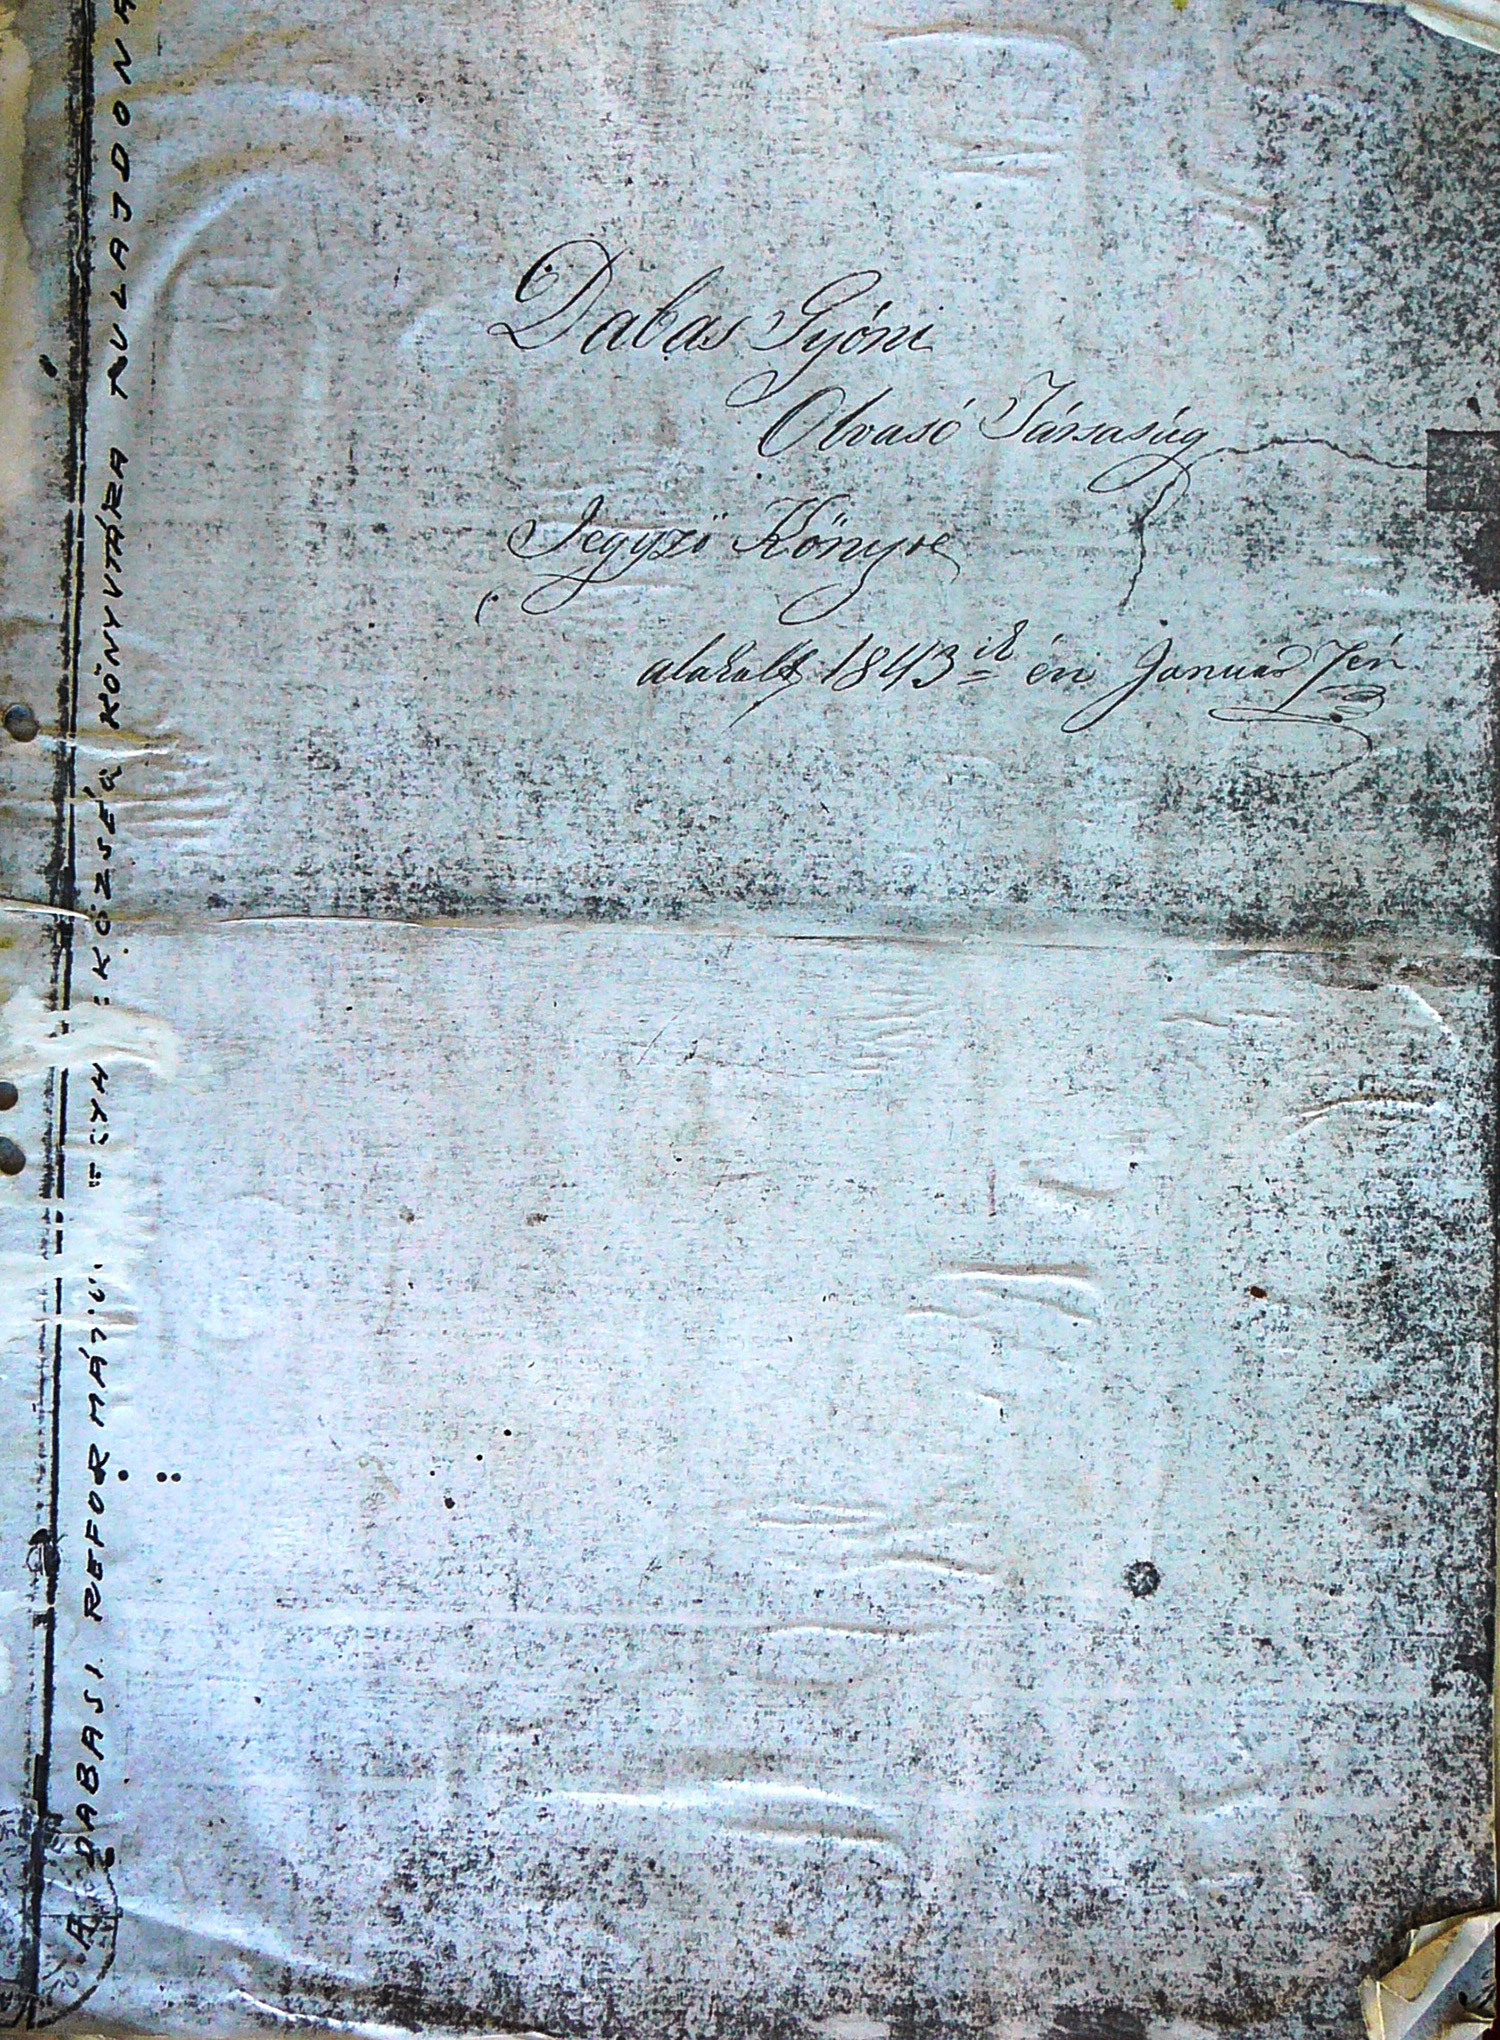 Dabas Gyóni
Olvasó Társaság
Jegyző Könyve
alakult 1843ik év Január 7én
A DABASI REFORMÁTUS EGYH. KÖZSÉG KÖNYVTÁRA TULAJDONA